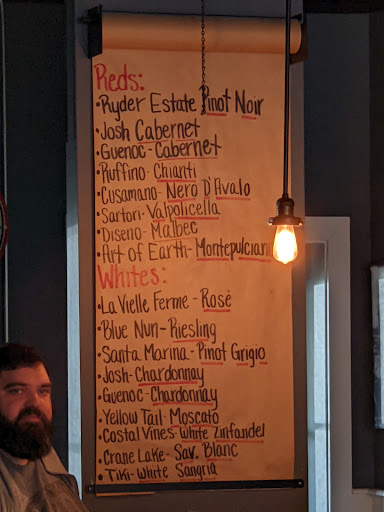 Reds:
•Ryder Estate Pinot Noir
•Josh Cabernet
•Guenoc-Cabernet
•Ruffino-Chianti
•Cusamano-Nero D'Avalo
•Sartori-Valpolicella
•Diseno-Malbec
•Art of Earth-Montepulciano
Whites:
•La Vielle Ferme-Rosè
•Blue Nun-Riesling
•Santa Marina-Pinot Grigio
•Josh-Chardonnay
•Guenoc-Chardonnay
•Yellow Tail-Moscato
•Costal Vines-White Zinfandel
•Crane Lake-Sav. Blanc
•Tiki-White Sangria